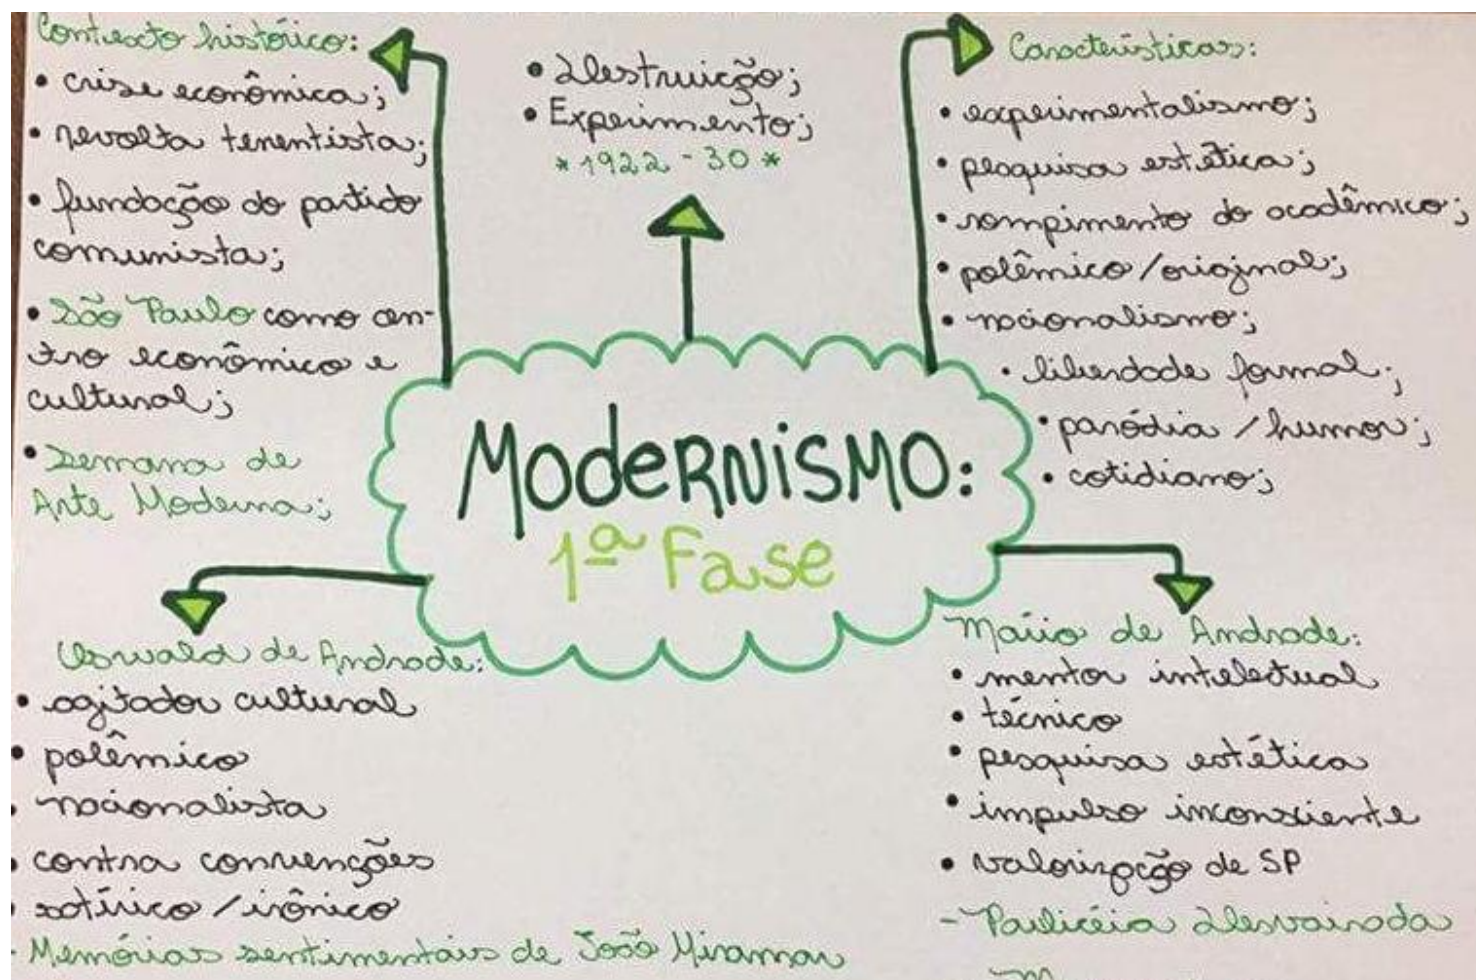 Contexto histórico:
• crise econômica;
• revolta tenentista;
• fundação do partido
comunista;
• São Paulo como cen-
tro econômico e
cultural;
• Semana de
Arte Moderna;
• Destruição;
• Experimento;
* 1922 - 30 *
Características:
• experimentalismo;
• pesquisa estética;
• rompimento do acadêmico;
• polêmico/original;
• nacionalismo;
• liberdade formal;
• paródia / humor;
• cotidiano;
Modernismo:
1ª Fase
Oswald de Andrade:
• agitador cultural
• polêmico
• nacionalista
• contra convenções
• satírico / irônico
- Memórias sentimentais de João Miramar
Mário de Andrade:
• mentor intelectual
• técnico
• pesquisa estética
• impulso inconsciente
• valorização de SP
- Paulicéia Desvairada